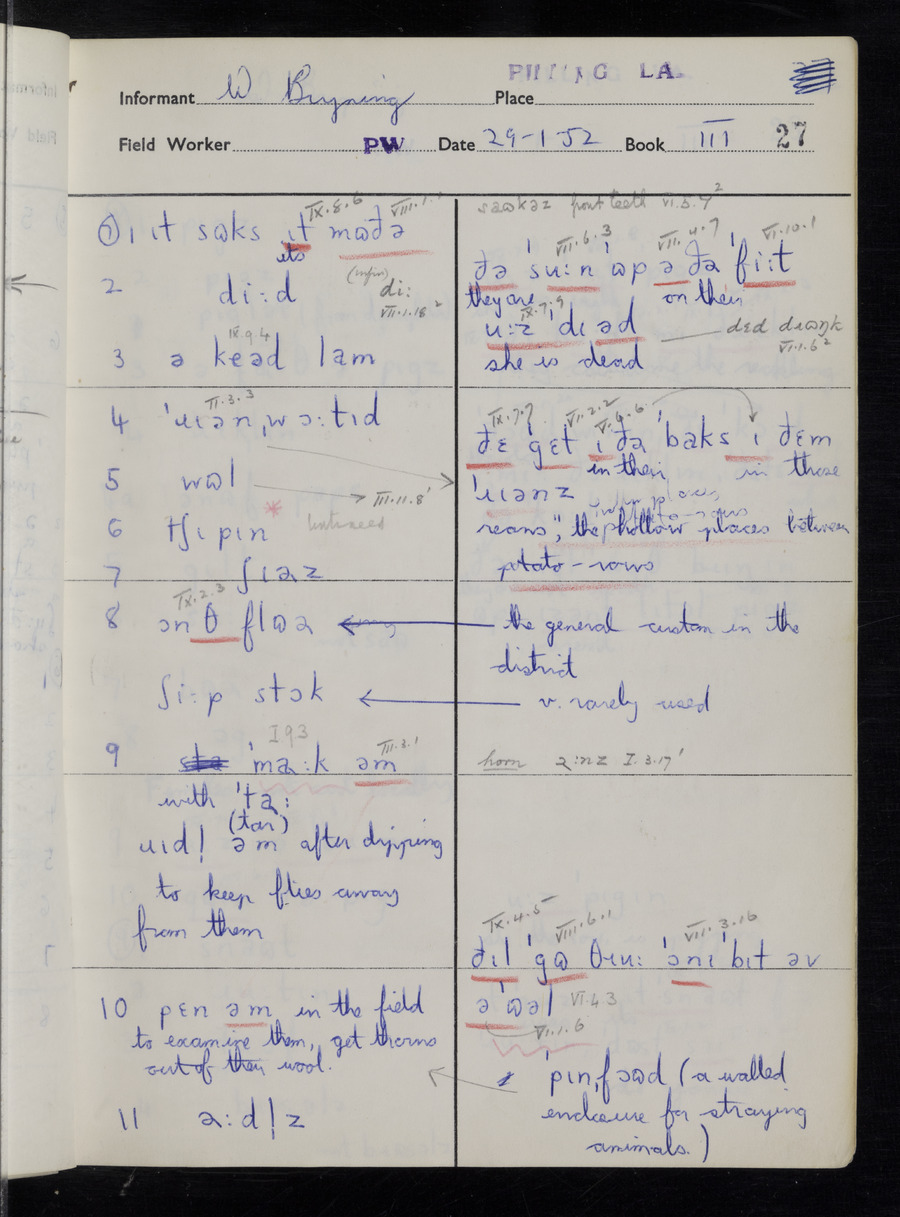 PILLING LA.
Informant W Bryning Place
Field Worker PW Date 29-1 52 Book III 27
⑦ 1 ɪt sɷks ɪt mɷðə
IX.8.6 VIII.1.1
its
2 di:d (infin) di:
VII.1.18²
IX.9.4
3 ə keəd lam
II.3.3
4 'ɹɪən,wɔ:tɪd
5 wɷl III.11.8'
6 tʃɪpɪn
7 ʃɪəz
IX.2.3
8 ɔn θ flɷə
ʃi:p stɔk
I 9 3 VII.3.1
9 'ma:k əm
with 'ta:
(tar)
ɹɪd! əm after dipping
to keep flies away
from them
10 pɛn əm in the field
to examine them, get thorns
out of their wool.
11 a:d!z
sɷkəz front teeth VI.5.7²
VII.6.3 VII.4.7 VI.10.1
ðə 'su:n 'ɷp ə ðə 'fi:t
they are on their
IX.7.9
u:z 'dɪəd dɛd dɹɷŋk
VI.1.6²
she is dead
IX.7.7 VI.2.2 V.6.6
ðɛ 'gɛt ɪ ðə 'baks ɪ ðɛm
in their in those
'ɹɪənz
reans", the hollow places between
potato-rows
the general custom in the
district
v. rarely used
horn a:nz I.3.17'
IX.4.5 VIII.6.1 VII.3.16
ðɪl 'gɷ θɹu: 'ɔnɪ 'bɪt əv
ə 'ɷəl VI 4 3
VI.1.6
'pɪn,fɔɷd (a walled
enclosure for straying
animals.)